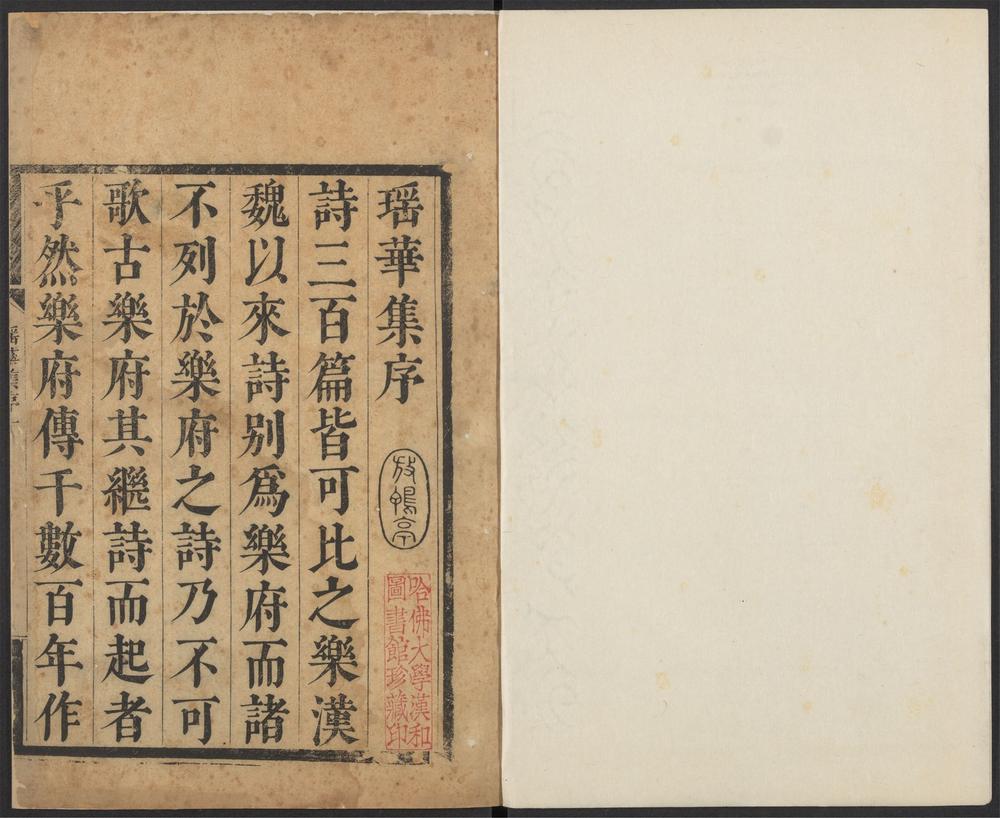 瑶華集序
放鴨亭
哈佛大學漢和
圖書館珍藏印
詩三百篇皆可比之樂漢
魏以來詩别爲樂府而諸
不列於樂府之詩乃不可
歌古樂府其繼詩而起者
乎然樂府傳千數百年作